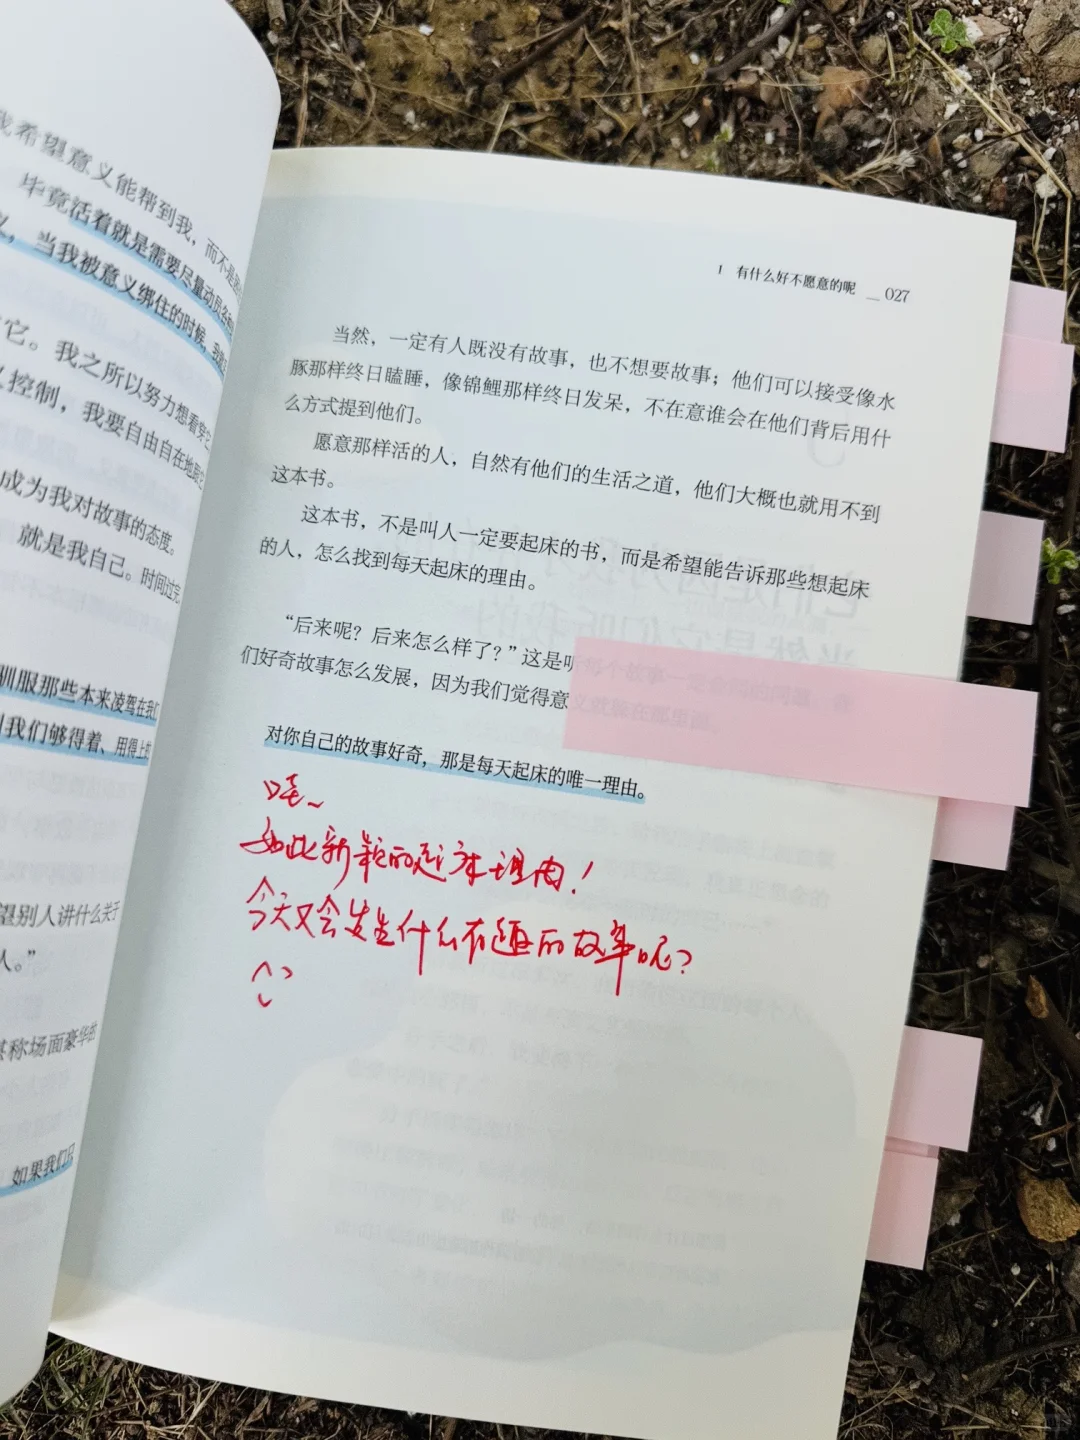 我希望意义能帮到我，而不是
毕竟活着就是需要尽量动员各
，当我被意义绑住的时候，我
它。我之所以努力想看穿它
控制，我要自由自在地跟它
成为我对故事的态度。
就是我自己。时间过完
服那些本来凌驾在我们
我们够得着、用得上的
望别人讲什么关于
人。”
堪称场面豪华的
如果我们只
1 有什么好不愿意的呢 __ 027
当然，一定有人既没有故事，也不想要故事；他们可以接受像水
豚那样终日瞌睡，像锦鲤那样终日发呆，不在意谁会在他们背后用什
么方式提到他们。
愿意那样活的人，自然有他们的生活之道，他们大概也就用不到
这本书。
这本书，不是叫人一定要起床的书，而是希望能告诉那些想起床
的人，怎么找到每天起床的理由。
“后来呢？后来怎么样了？”这是听每个故事一定会问的问题，我
们好奇故事怎么发展，因为我们觉得意义就躲在那里面。
对你自己的故事好奇，那是每天起床的唯一理由。
哇~
如此新颖的起床理由！
今天又会发生什么有趣的故事呢？